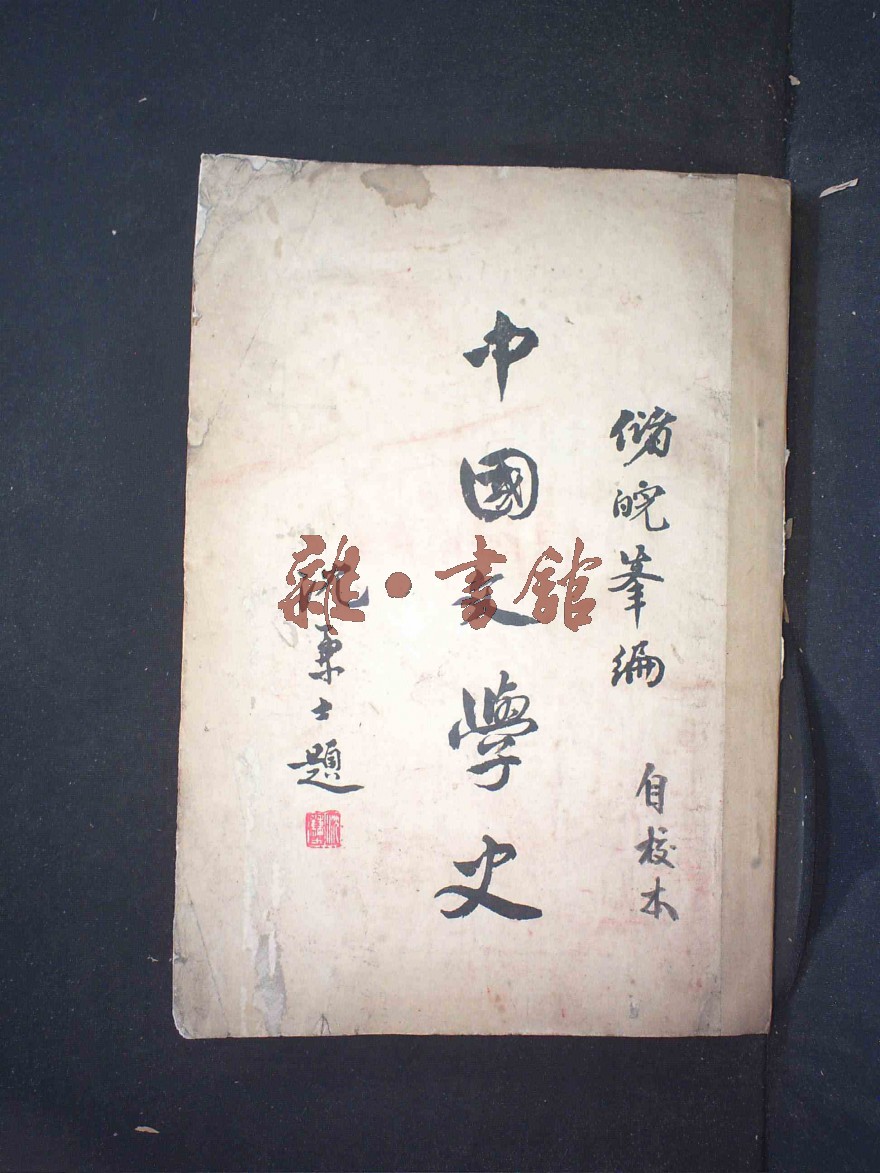 儲皖峯編
自校本
中國文學史
沈兼士題
雜·書館